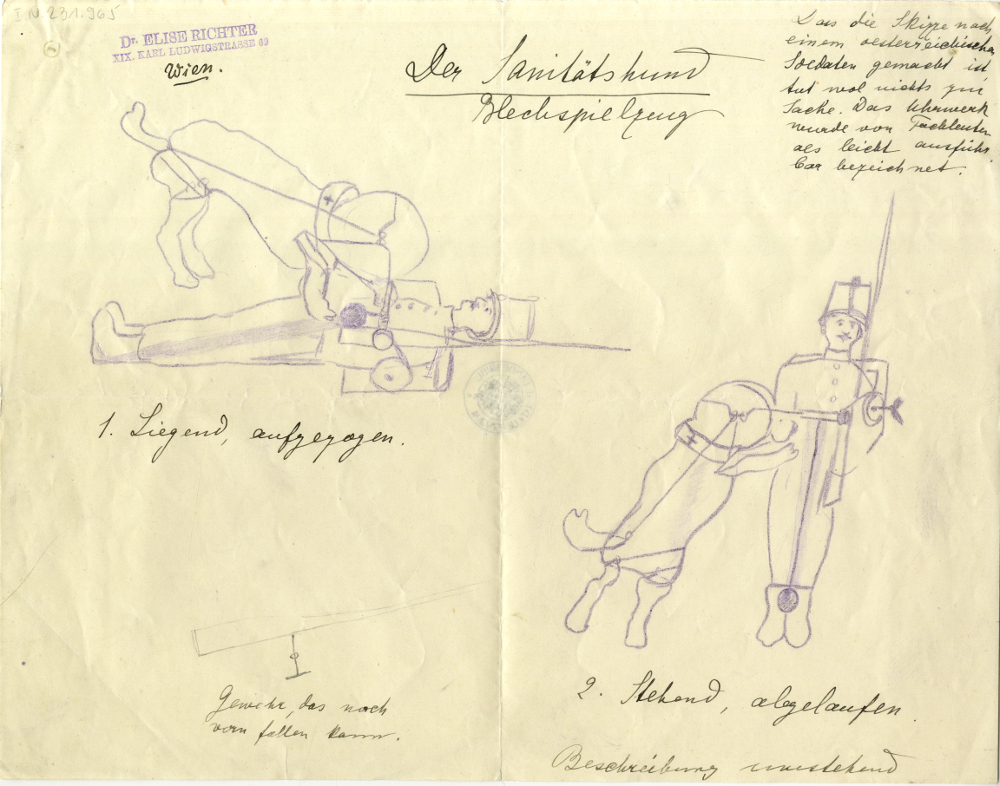 I.N. 231.965
Dr. ELISE RICHTER
XIX. KARL LUDWIGSTRASSE 69
Wien.
Der Sanitätshund
Blechspielzeug
Dass die Skizze nach
einem oesterreichischen
Soldaten gemacht ist
tut wol nichts zur
Sache. Das Uhrwerk
wurde von Fachleuten
als leicht ausführ
bar bezeichnet.
1. Liegend, aufgezogen.
2. Stehend, abgelaufen.
Gewehr, das nach
vorn fallen kann.
Beschreibung umstehend